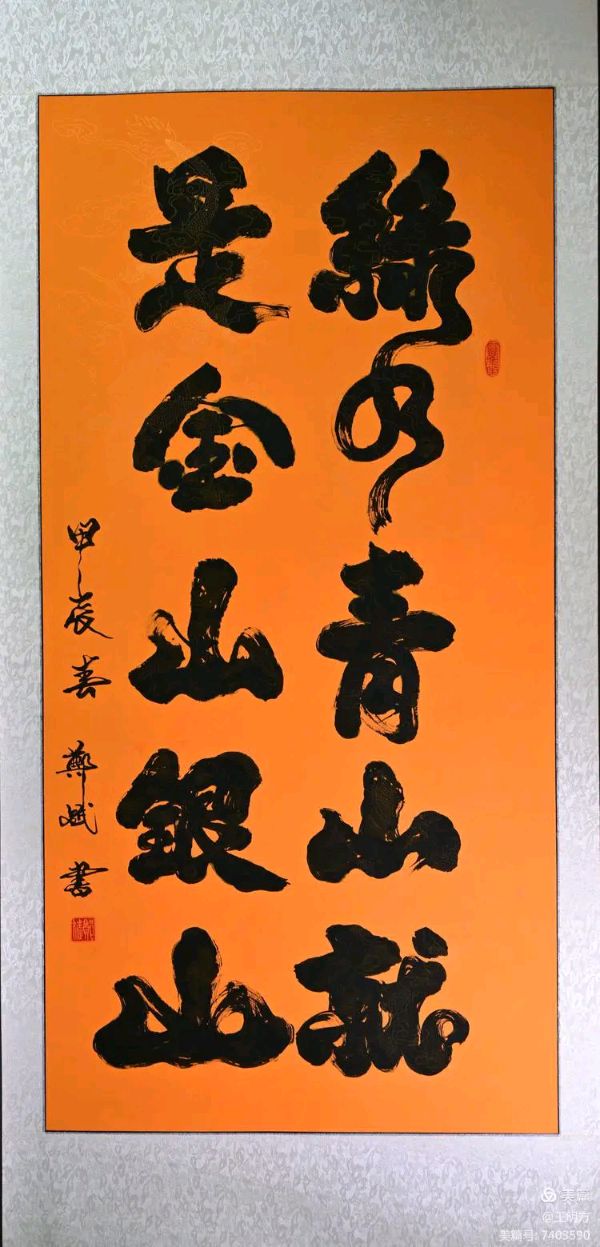 綠水青山就
是金山銀山
甲辰春 鄭斌書
美篇
@王明方
美篇号: 7403590